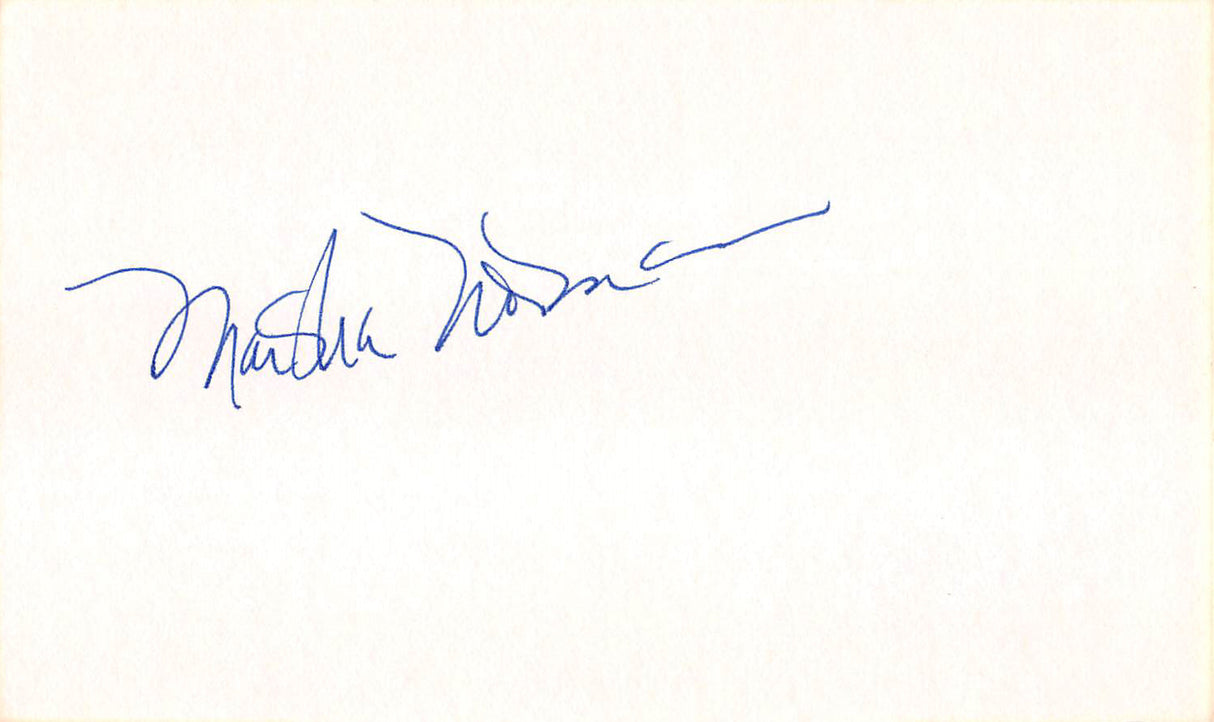 Marsha Norman